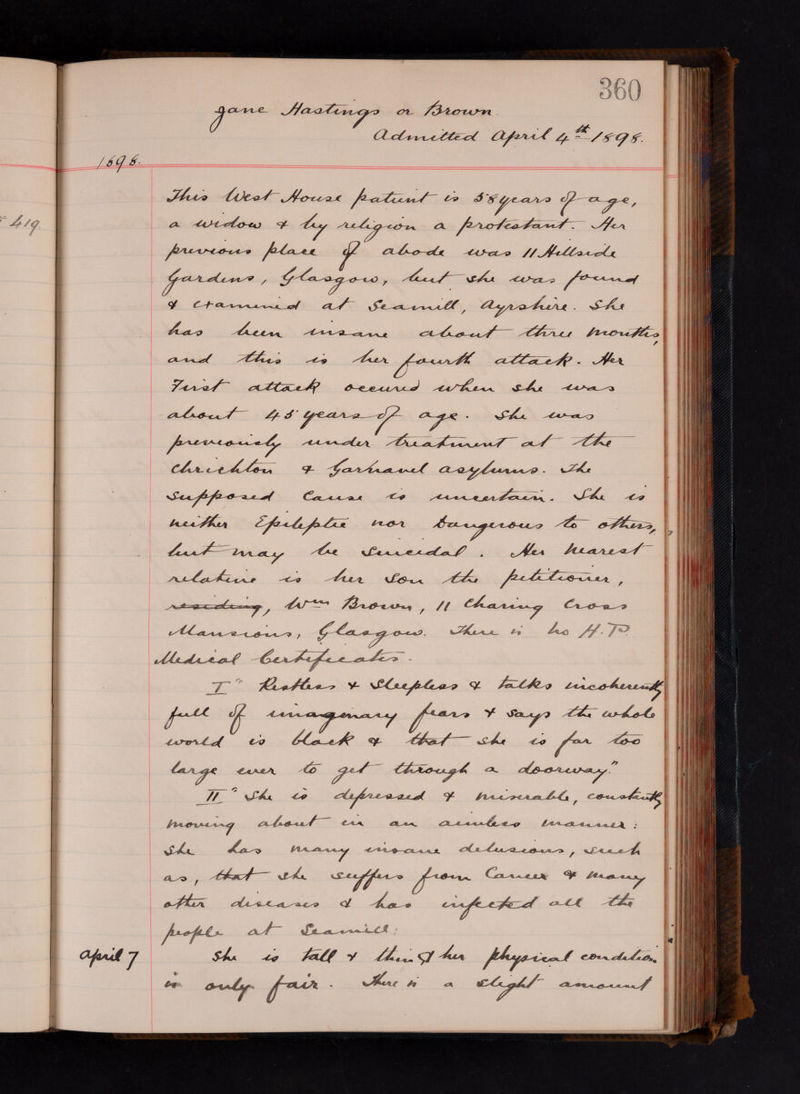 360
Jane Hastings or Brown.
Admitted April 4th 1898.
1898.
419
This West House patient is 58 years of age,
a widow & by religion a protestant. Her
previous place of abode was 11 Hillside
Gardens, Glasgow, but she was found
& examined at Seamill, Ayrshire. She
has been insane about three months,
and this is her fourth attack. Her
First attack occured when she was
about 45 years of age. She was
previously under treatment at the
Chrichton & Garnavel asylums. The
supposed Cause is uncertain. She is
neither Epileptic nor Dangerous to others,
but may be Suicidal. Her Nearest
relative is her Son the petitioner,
residing, Wm Brown, 11 Charing Cross
Mansions, Glasgow. There is no H.P.
Medical Certificates.
I "Restless & Sleepless & talks incoherently
full of imagenary fears & says the whole
world is black & that she is far too
large ever to get through a doorway."
II "She is depressed & miserable, constantly
moving about in an aimless manner:
She has many insane delusions, such
as, that she suffers from Cancer & many
other diseases & has infected all the
people at Seamill:
April 7 She is tall & thin & her physical condition
is only fair. There is a slight amount